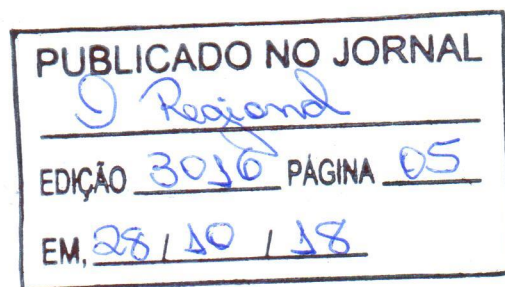 PUBLICADO NO JORNAL
O Regional
EDIÇÃO 3016 PÁGINA 05
EM, 28 / 10 / 18